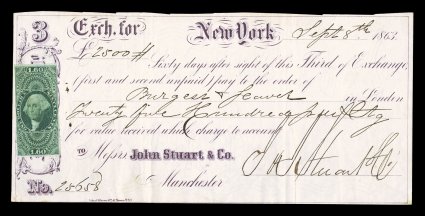 3 Exch. for New York Sept 8th 1863
£2500 Sixty days after sight of this Third of Exchange
(first and second unpaid) pay to the order of
Burgess in London
Twenty five Hundred Stg
for value received which charge to account
TO Messrs John Stuart & Co.
J & J Stuart & Co
Manchester
No. 28658